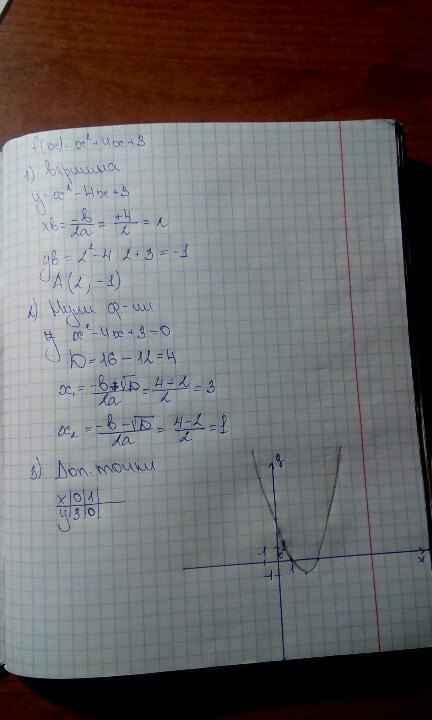 f(x) = x² + 4x + 3
1) Вершина
y = x² - 4x + 3
xв = -b/2a = +4/2 = 2
yв = 2² - 4 2 + 3 = -1
A (2, -1)
2) Нули ф-ии
x² - 4x + 3 = 0
D = 16 - 12 = 4
x₁ = -b+√D/2a = 4-2/2 = 3
x₂ = -b-√D/2a = 4-2/2 = 1
3) Доп. точки
x 0 1
y 3 0
y
-1 0 1 x
1
-1